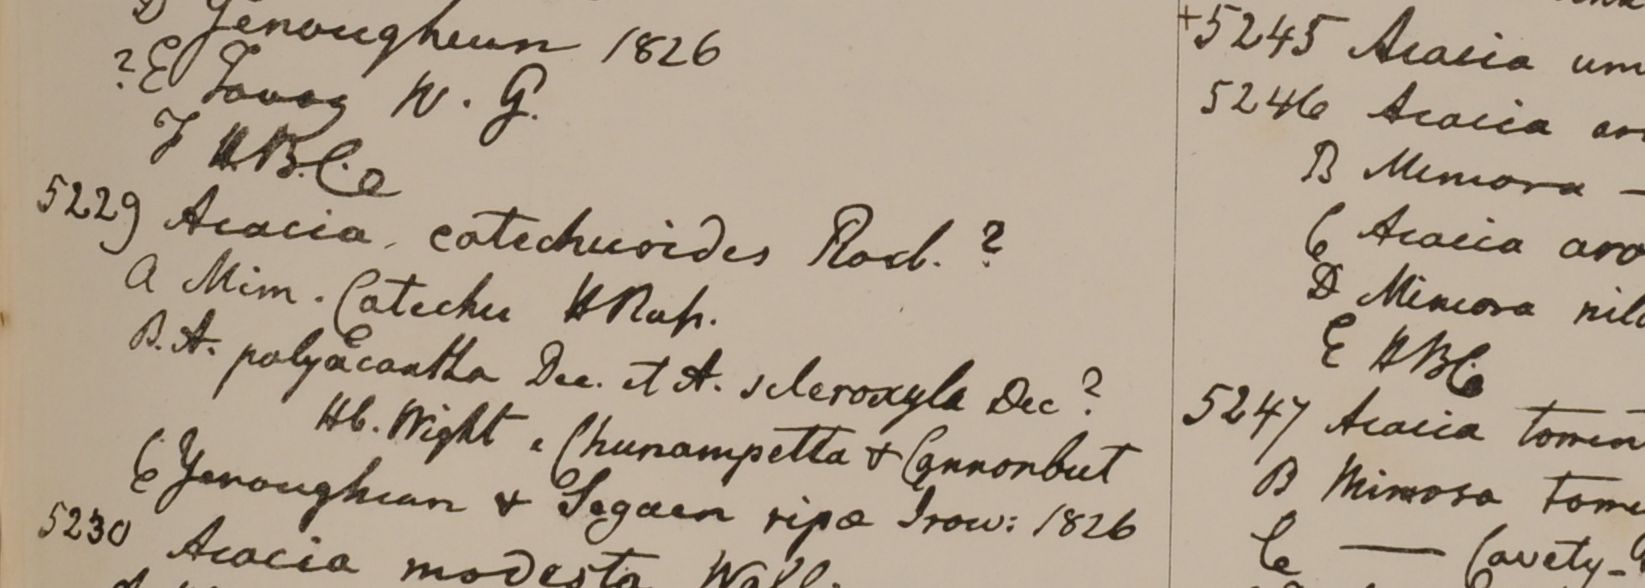 D Yenaugheun 1826
?E Tavoy W. G.
F HBC.
5229 Acacia catechuoides Roxb. ?
A Mim. Catechu HRoxb.
B. A. polyacantha Dec. et A. scleroxyla Dec ?
Hb. Wight. Chunampetta & Cannonbut
C Yenaugheun & Segaen ripa Irow: 1826
5230 Acacia modesta Wall.
+5245 Acacia
5246 Acacia
B Mimosa —
C Acacia
D Mimosa
E HBC
5247 Acacia
B Mimosa
C —